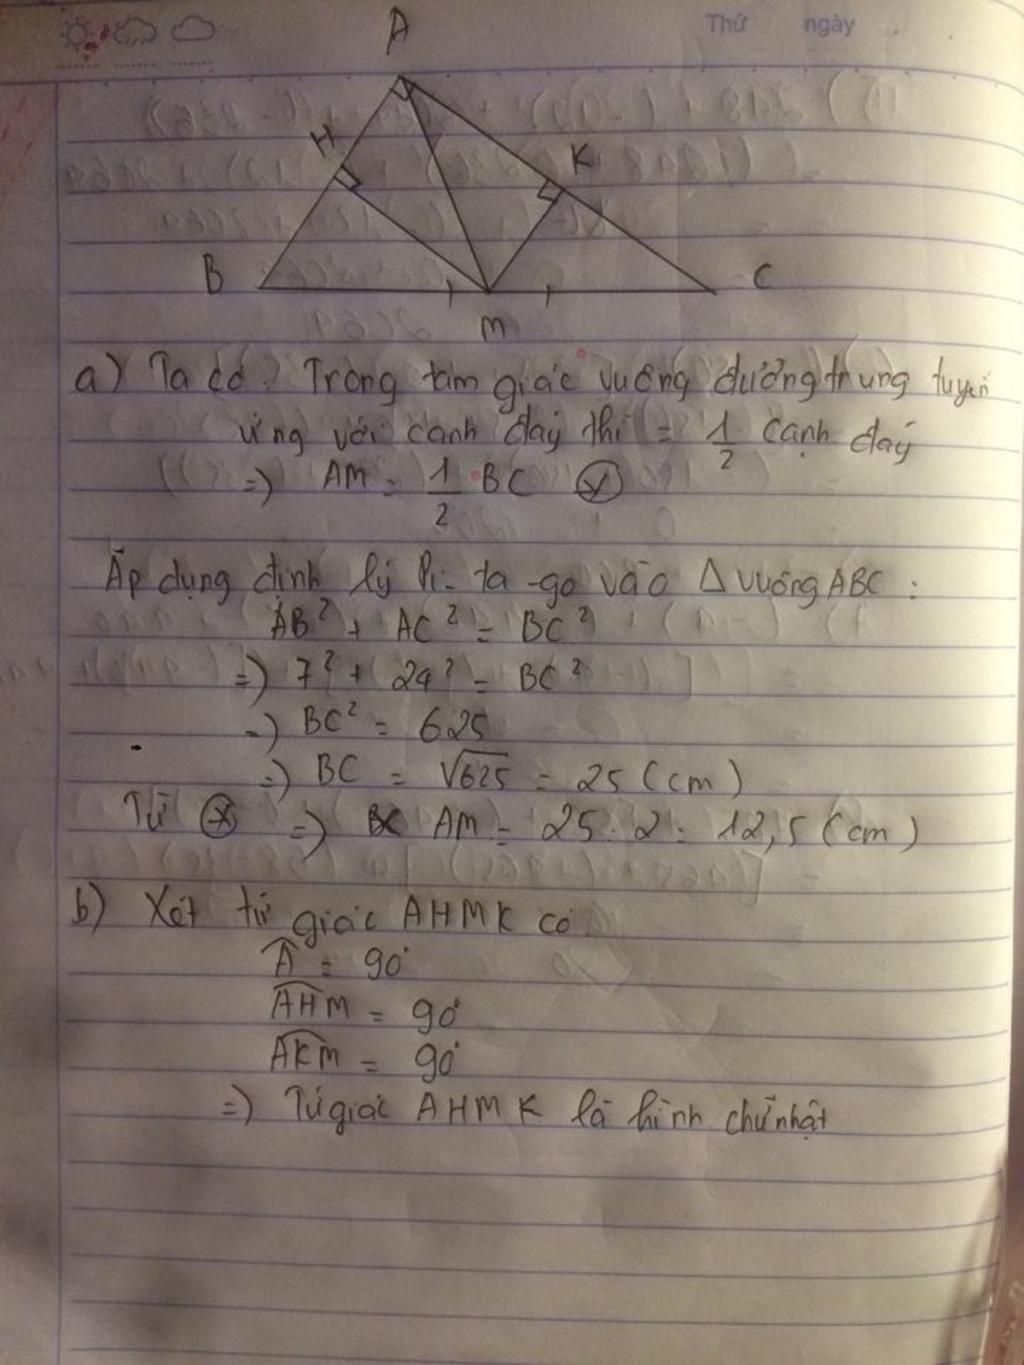 Thứ ngày
A
H
K
B
C
M
a) Ta có: Trong tam giác vuông đường trung tuyến
ứng với cạnh đáy thì = 1/2 cạnh đáy
=) AM = 1/2 BC (*)
Áp dụng định lý Pi-ta-go vào Δ vuông ABC :
AB² + AC² = BC²
=) 7² + 24² = BC²
=) BC² = 625
=) BC = √625 = 25 (cm)
Từ (*) =) AM = 25 : 2 = 12,5 (cm)
b) Xét tứ giác AHMK có:
Â = 90°
AHM = 90°
AKM = 90°
=) Tứ giác AHMK là hình chữ nhật